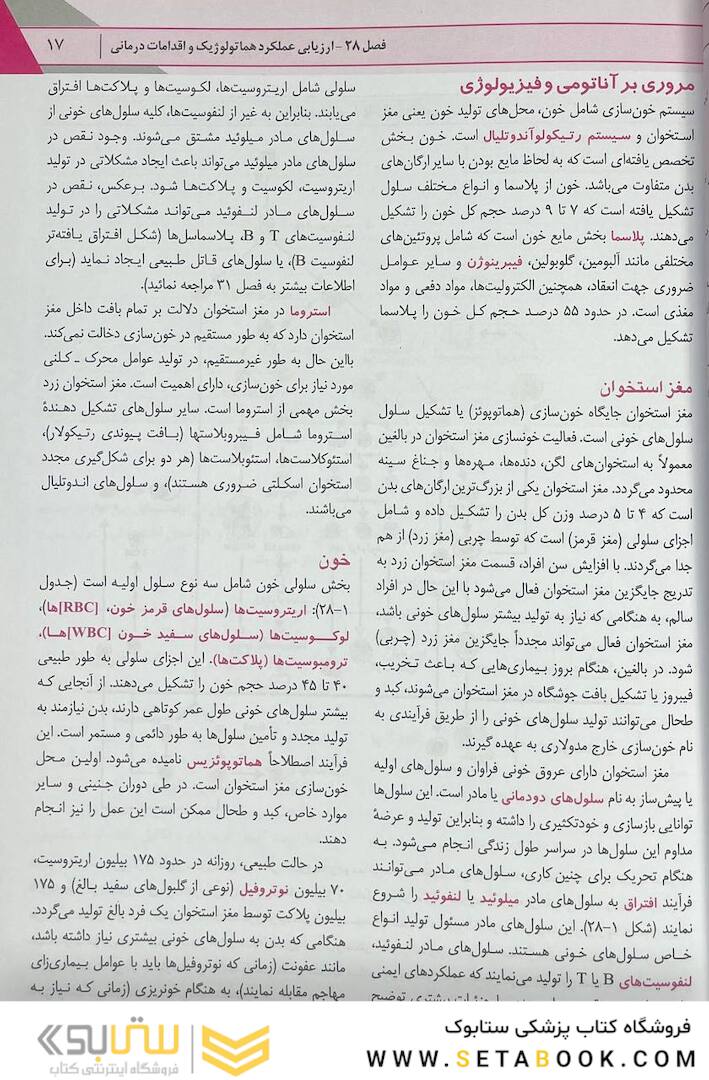 فصل ۲۸ - ارزیابی عملکرد هماتولوژیک و اقدامات درمانی
۱۷
مروری بر آناتومی و فیزیولوژی
سیستم خون‌سازی شامل خون، محل‌های تولید خون یعنی مغز
استخوان و سیستم رتیکولوآندوتلیال است. خون بخش
تخصص یافته‌ای است که به لحاظ مایع بودن با سایر ارگان‌های
بدن متفاوت می‌باشد. خون از پلاسما و انواع مختلف سلول
تشکیل یافته است که ۷ تا ۹ درصد حجم کل خون را تشکیل
می‌دهند. پلاسما بخش مایع خون است که شامل پروتئین‌های
مختلفی مانند آلبومین، گلوبولین، فیبرینوژن و سایر عوامل
ضروری جهت انعقاد، همچنین الکترولیت‌ها، مواد دفعی و مواد
مغذی است. در حدود ۵۵ درصد حجم کل خون را پلاسما
تشکیل می‌دهد.
مغز استخوان
مغز استخوان جایگاه خون‌سازی (هماتوپوئز) یا تشکیل سلول
سلول‌های خونی است. فعالیت خونسازی مغز استخوان در بالغین
معمولاً به استخوان‌های لگن، دنده‌ها، مهره‌ها و جناغ سینه
محدود می‌گردد. مغز استخوان یکی از بزرگ‌ترین ارگان‌های بدن
است که ۴ تا ۵ درصد وزن کل بدن را تشکیل داده و شامل
اجزای سلولی (مغز قرمز) است که توسط چربی (مغز زرد) از هم
جدا می‌گردند. با افزایش سن افراد، قسمت مغز استخوان زرد به
تدریج جایگزین مغز استخوان فعال می‌شود با این حال در افراد
سالم، به هنگامی که نیاز به تولید بیشتر سلول‌های خونی باشد،
مغز استخوان فعال می‌تواند مجدداً جایگزین مغز زرد (چربی)
شود. در بالغین، هنگام بروز بیماری‌هایی که باعث تخریب،
فیبروز یا تشکیل بافت جوشگاه در مغز استخوان می‌شوند، کبد و
طحال می‌توانند تولید سلول‌های خونی را از طریق فرآیندی به
نام خون‌سازی خارج مدولاری به عهده گیرند.
مغز استخوان دارای عروق خونی فراوان و سلول‌های اولیه
یا پیش‌ساز به نام سلول‌های دودمانی یا مادر است. این سلول‌ها
توانایی بازسازی و خودتکثیری را داشته و بنابراین تولید و عرضهٔ
مداوم این سلول‌ها در سراسر طول زندگی انجام می‌شود. به
هنگام تحریک برای چنین کاری، سلول‌های مادر می‌توانند
فرآیند افتراق به سلول‌های مادر میلوئید یا لنفوئید را شروع
نمایند (شکل ۱-۲۸). این سلول‌های مادر مسئول تولید انواع
خاص سلول‌های خونی هستند. سلول‌های مادر لنفوئید،
لنفوسیت‌های B یا T را تولید می‌نمایند که عملکردهای ایمنی
سلولی شامل اریتروسیت‌ها، لکوسیت‌ها و پلاکت‌ها افتراق
می‌یابند. بنابراین به غیر از لنفوسیت‌ها، کلیه سلول‌های خونی از
سلول‌های مادر میلوئید مشتق می‌شوند. وجود نقص در
سلول‌های مادر میلوئید می‌تواند باعث ایجاد مشکلاتی در تولید
اریتروسیت، لکوسیت و پلاکت‌ها شود. برعکس، نقص در
سلول‌های مادر لنفوئید می‌تواند مشکلاتی را در تولید
لنفوسیت‌های T و B، پلاسماسل‌ها (شکل افتراق یافته‌تر
لنفوسیت B)، یا سلول‌های قاتل طبیعی ایجاد نماید (برای
اطلاعات بیشتر به فصل ۳۱ مراجعه نمائید).
استروما در مغز استخوان دلالت بر تمام بافت داخل مغز
استخوان دارد که به طور مستقیم در خون‌سازی دخالت نمی‌کند.
بااین حال به طور غیرمستقیم، در تولید عوامل محرک ـ کلنی
مورد نیاز برای خون‌سازی، دارای اهمیت است. مغز استخوان زرد
بخش مهمی از استروما است. سایر سلول‌های تشکیل دهندهٔ
استروما شامل فیبروبلاستها (بافت پیوندی رتیکولار)،
استئوکلاست‌ها، استئوبلاست‌ها (هر دو برای شکل‌گیری مجدد
استخوان اسکلتی ضروری هستند)، و سلول‌های اندوتلیال
می‌باشند.
خون
بخش سلولی خون شامل سه نوع سلول اولیه است (جدول
۱-۲۸): اریتروسیت‌ها (سلول‌های قرمز خون، [RBC]ها)،
لوکوسیت‌ها (سلول‌های سفید خون [WBC]ها)،
ترومبوسیت‌ها (پلاکت‌ها). این اجزای سلولی به طور طبیعی
۴۰ تا ۴۵ درصد حجم خون را تشکیل می‌دهند. از آنجایی که
بیشتر سلول‌های خونی طول عمر کوتاهی دارند، بدن نیازمند به
تولید مجدد و تأمین سلول‌ها به طور دائمی و مستمر است. این
فرآیند اصطلاحاً هماتوپوئزیس نامیده می‌شود. اولین محل
خون‌سازی مغز استخوان است. در طی دوران جنینی و سایر
موارد خاص، کبد و طحال ممکن است این عمل را نیز انجام
دهند.
در حالت طبیعی، روزانه در حدود ۱۷۵ بیلیون اریتروسیت،
۷۰ بیلیون نوتروفیل (نوعی از گلبول‌های سفید بالغ) و ۱۷۵
بیلیون پلاکت توسط مغز استخوان یک فرد بالغ تولید می‌گردد.
هنگامی که بدن به سلول‌های خونی بیشتری نیاز داشته باشد،
مانند عفونت (زمانی که نوتروفیل‌ها باید با عوامل بیماری‌زای
مهاجم مقابله نمایند)، به هنگام خونریزی (زمانی که نیاز به
فروشگاه کتاب پزشکی ستابوک
WWW.SETABOOK.COM
ستابوک
فروشگاه اینترنتی کتاب